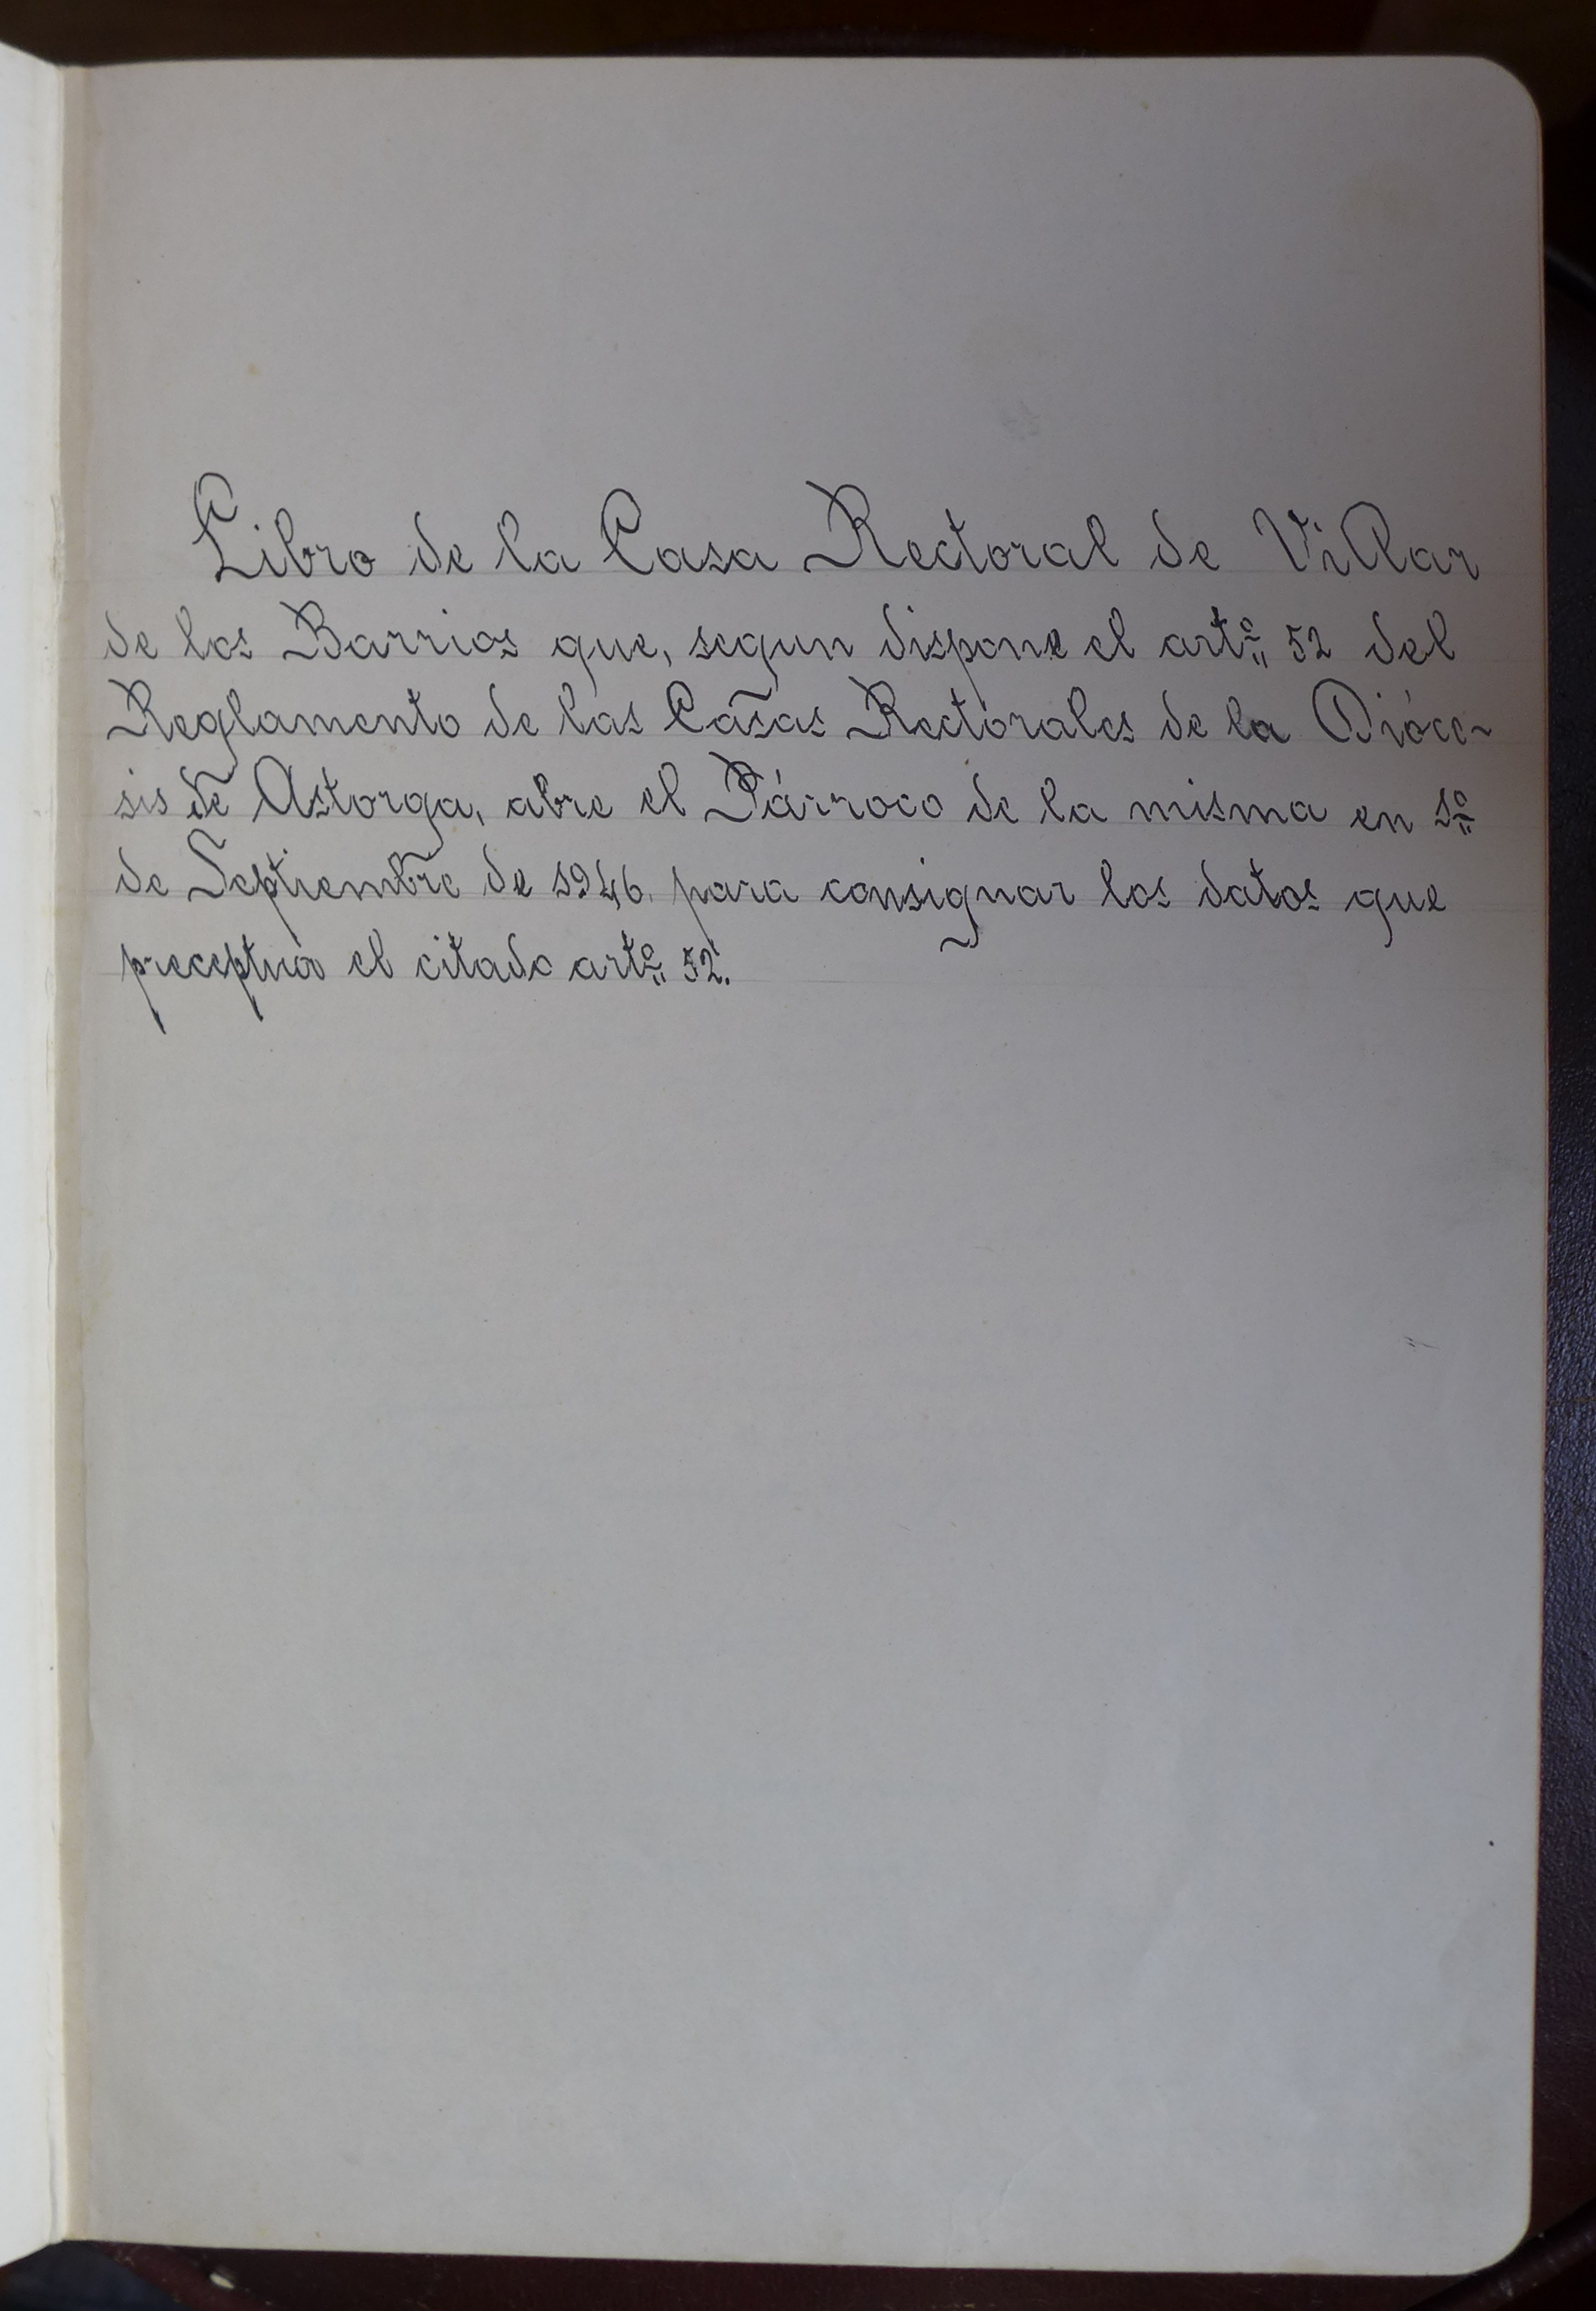 Libro de la Casa Rectoral de Villar
de los Barrios que, segun dispone el artº 52 del
Reglamento de las Casas Rectorales de la Dióce-
sis de Astorga, abre el Párroco de la misma en 1º
de Septiembre de 1946. para consignar los datos que
preceptua el citado artº 52.